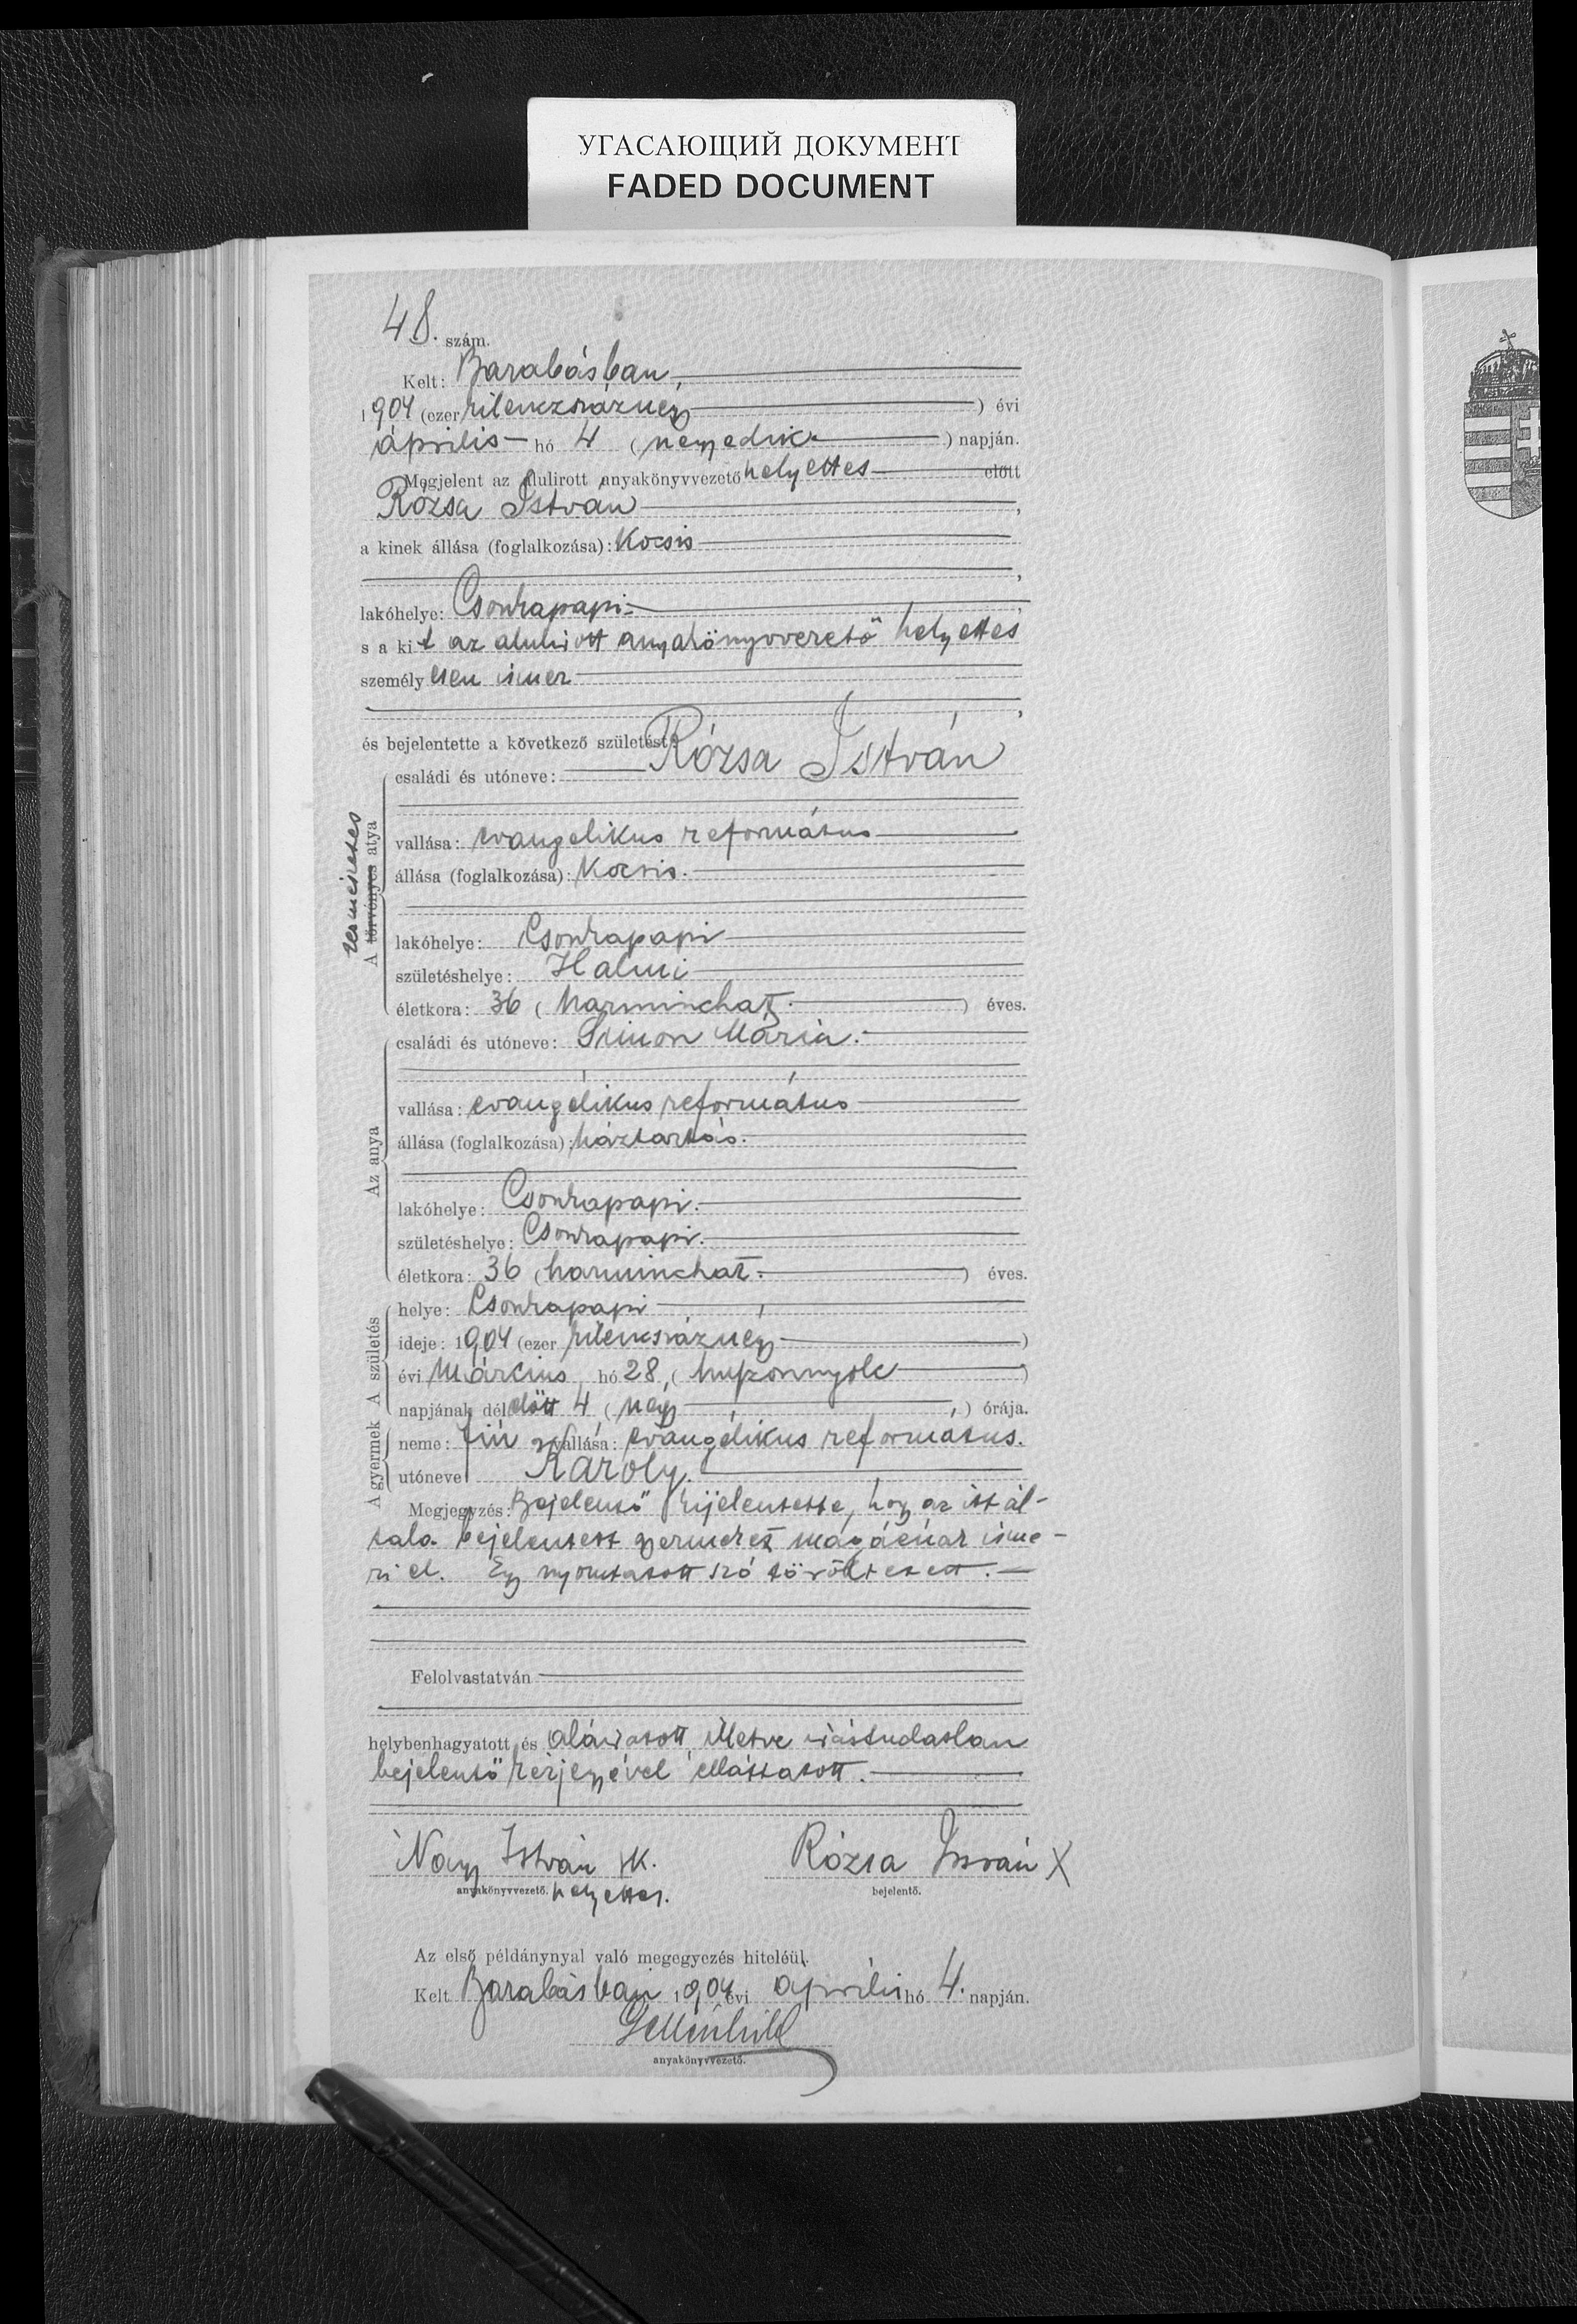 УГАСАЮЩИЙ ДОКУМЕНТ
FADED DOCUMENT
48. szám.
Kelt: Barabásban,
1904 (ezer kilenczszáznégy) évi
április hó 4 (negyedik) napján.
Megjelent az alulirott anyakönyvvezető helyettes előtt
Rózsa István,
a kinek állása (foglalkozása): Kocsis
,
lakóhelye: Csonkapapi,
s a kit az alulirott anyakönyvvezető helyettes
személyesen ismer
,
és bejelentette a következő születést:
A törvényes atya
természetes
családi és utóneve: Rózsa István
vallása: evangelikus református
állása (foglalkozása): Kocsis.
lakóhelye: Csonkapapi
születéshelye: Halmi
életkora: 36 (harminchat) éves.
Az anya
családi és utóneve: Simon Mária.
vallása: evangélikus református
állása (foglalkozása): háztartás.
lakóhelye: Csonkapapi.
születéshelye: Csonkapapi.
életkora: 36 (harminchat.) éves.
A születés
helye: Csonkapapi
ideje: 1904 (ezer kilencszáznégy)
évi március hó 28, (huszonnyolc)
napjának délelőtt 4 (négy) órája.
A gyermek
neme: fiú vallása: evangélikus református.
utóneve: Károly.
Megjegyzés: Bejelentő kijelentette, hogy az itt ál-
tala bejelentett gyermeket magáénak isme-
ri el. Egy nyomtatott szó töröltetett.
Felolvastatván
helybenhagyatott és aláiratott, illetve irástudatlan
bejelentő kézjegyével elláttatott.
Nagy István sk. Rózsa István X
anyakönyvvezető. helyettes. bejelentő.
Az első példánynyal való megegyezés hiteléül.
Kelt Barabásban 1904 évi április hó 4. napján.
anyakönyvvezető.